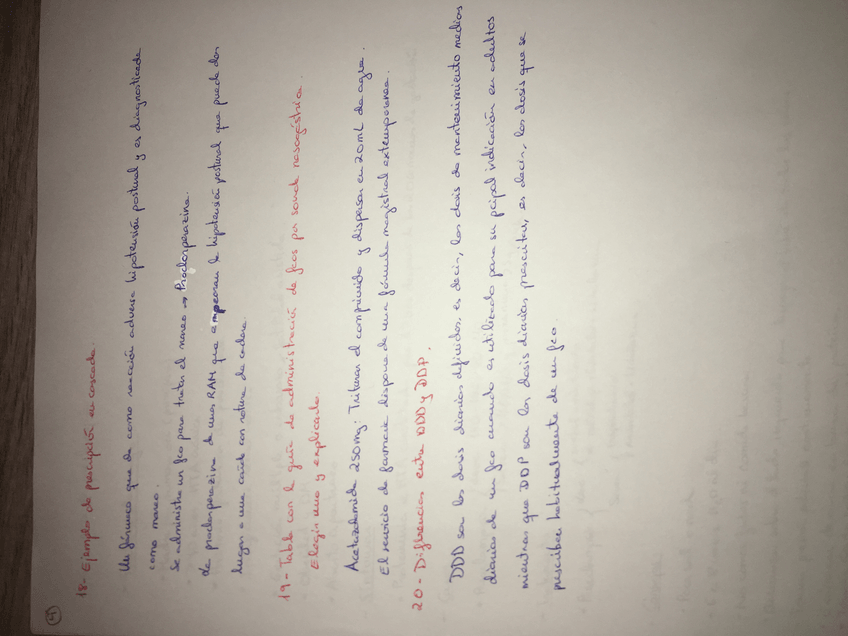 4
18- Ejemplo de prescripción en cascada.
Un fármaco que da como reacción adversa hipotensión postural y es diagnosticada
como mareo.
Se administra un fco para tratar el mareo → Proclorperazina.
La proclorperazina da unas RAM que empeoran la hipotensión postural que puede dar
lugar a una caída con rotura de cadera.
19- Tabla con la guía de administración de fcos por sonda nasogástrica.
Elegir uno y explicarlo.
Acetazolamida 250mg: Triturar el comprimido y dispersar en 20mL de agua.
El servicio de farmacia dispone de una fórmula magistral extemporánea.
20- Diferencias entre DDD y DDP.
DDD son las dosis diarias definidas, es decir, las dosis de mantenimiento medias
diarias de un fco cuando es utilizado para su pcipal indicación en adultos
mientras que DDP son las dosis diarias prescritas, es decir, las dosis que se
prescriben habitualmente de un fco.